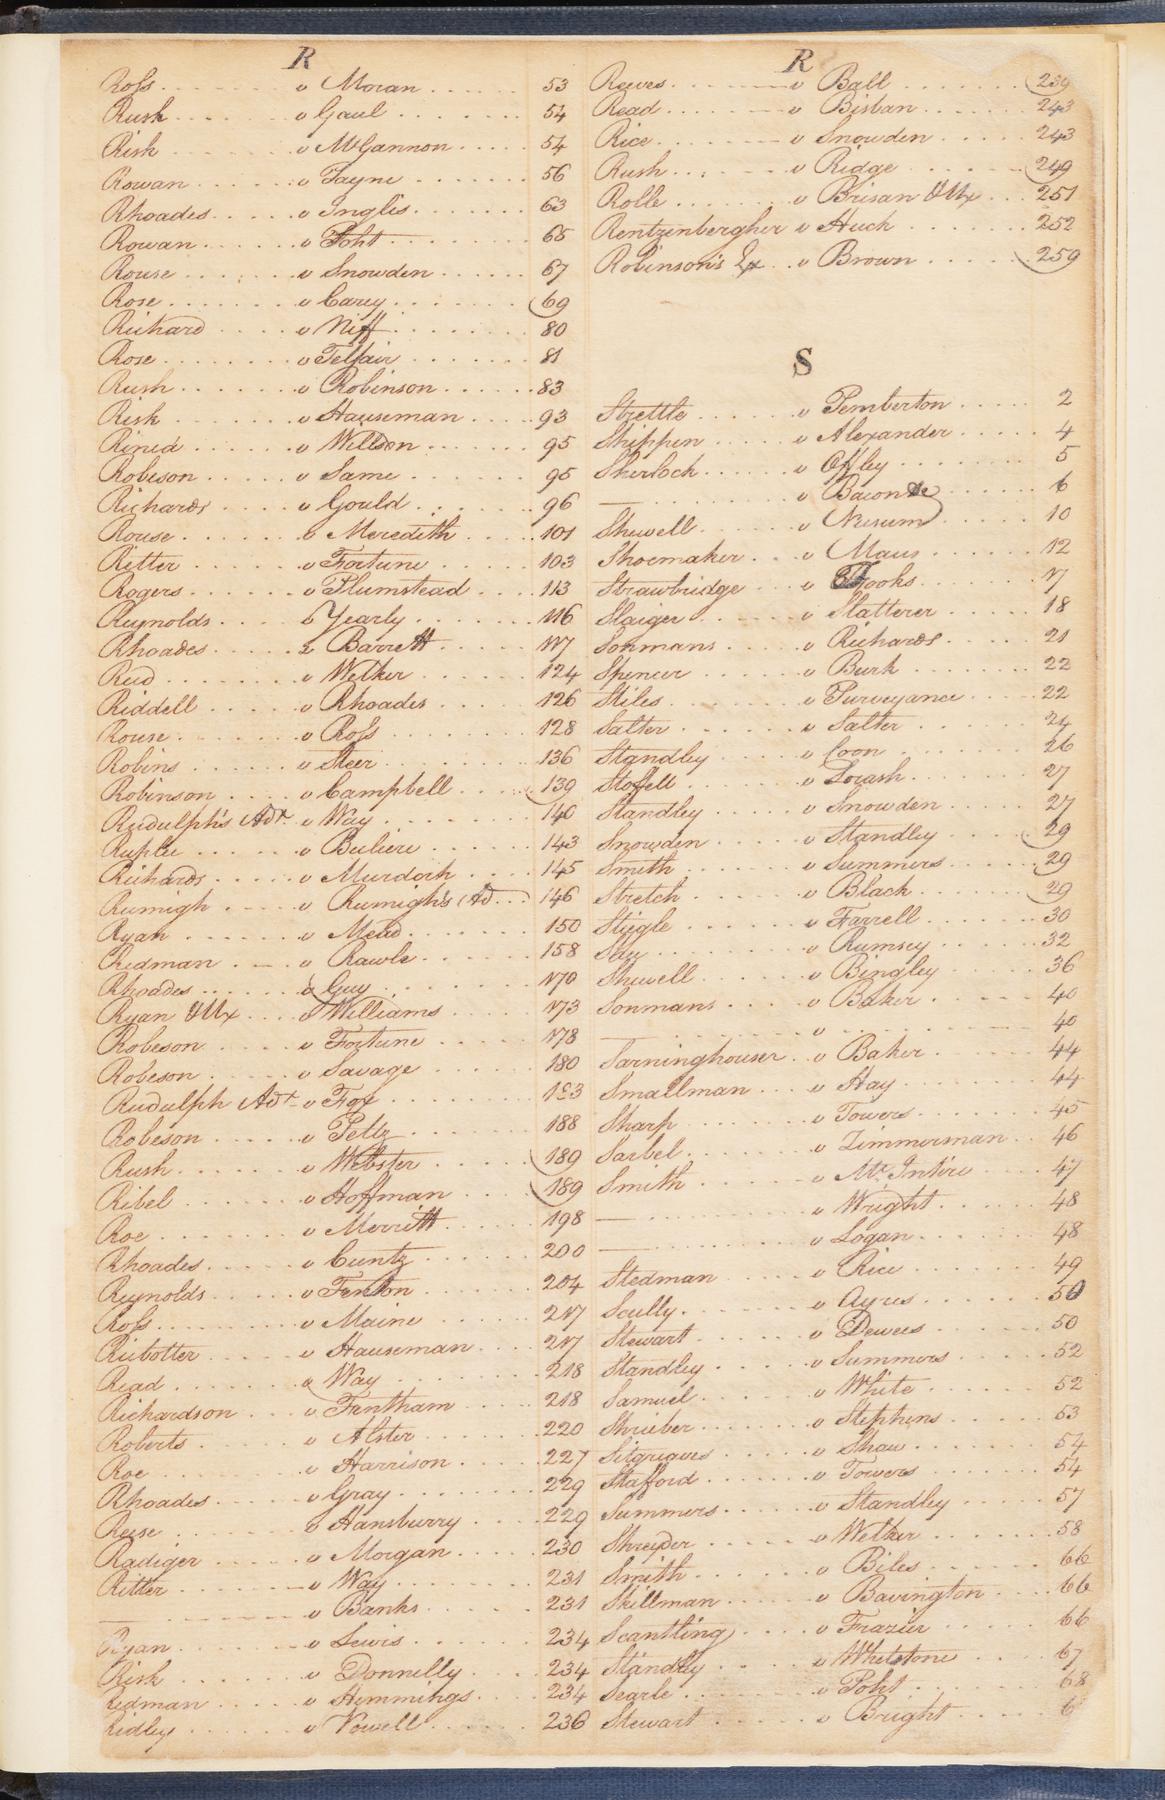 R
Ross v Moran 53
Rush v Gaul 54
Risk v McGannon 54
Rowan v Fayne 56
Rhoades v Inglis 63
Rowan v Poht 65
Rouse v Snowden 67
Rose v Carey 69
Richard v Niff 80
Rose v Telfair 81
Rush v Robinson 83
Risk v Hauseman 93
Rined v Willdon 95
Robeson v Same 95
Richards v Gould 96
Rouse v Meredith 101
Ritter v Fortune 103
Rogers v Plumstead 113
Reynolds v Yearly 116
Rhoades v Barrett 117
Reid v Welker 124
Riddell v Rhoades 126
Rouse v Ross 128
Robins v Steer 136
Robinson v Campbell 139
Rudulph's Adr v Way 140
Ruplee v Buliere 143
Richards v Murdoch 145
Rumigh v Rumigh's Ad 146
Ryan v Mead 150
Redman v Rawle 158
Rhoades v Guy 170
Ryan & Ux v Williams 173
Robeson v Fortune 178
Robeson v Savage 180
Rudulph Adr v Fox 183
Robeson v Peltz 188
Rush v Webster 189
Ribel v Hoffman 189
Roe v Merritt 198
Rhoades v Cuntz 200
Reynolds v Fenton 204
Ross v Maine 217
Ribotter v Hauseman 217
Read v Way 218
Richardson v Fentham 218
Roberts v Alster 220
Roe v Harrison 227
Rhoades v Gray 229
Reese v Hansburry 229
Radiger v Morgan 230
Ritter v Way 231
— v Banks 231
Ryan v Lewis 234
Risk v Donnilly 234
Redman v Hemmings 234
Ridley v Vowell 236
R
Reeves v Ball 239
Read v Bisban 243
Rice v Snowden 243
Rush v Ridge 249
Rolle v Brisan & Ux 251
Rentzenbergher v Huck 252
Robinson's Ex v Brown 259
S
Strettle v Pemberton 2
Shippen v Alexander 4
Sherlock v Offley 5
— v Bacon 6
Shewell v Nusum 10
Shoemaker v Maus 12
Strawbridge v Hooks 17
Slaiger v Statterer 18
Sonmans v Richards 21
Spencer v Burk 22
Stiles v Purveyance 22
Salter v Salter 24
Standley v Coon 26
Stoffell v Lorash 27
Standley v Snowden 27
Snowden v Standley 29
Smith v Summers 29
Stretch v Black 29
Stiegle v Farrell 30
Say v Rumsey 32
Shewell v Bingley 36
Sonmans v Baker 40
— v 40
Sarninghouser v Baker 44
Smallman v Hay 44
Sharp v Towers 45
Sarbel v Zimmerman 46
Smith v McIntire 47
— v Wright 48
— v Logan 48
Stedman v Rice 49
Scully v Ayres 50
Stewart v Dewees 50
Standley v Summers 52
Samuel v White 52
Shrieber v Stephens 53
Sitgreaves v Shaw 54
Stafford v Towers 54
Summers v Standley 57
Shreyder v Welker 58
Smith v Biles 66
Skillman v Bavington 66
Scantling v Frazier 66
Standley v Whetstone 67
Searle v Poht 68
Stewart v Bright 6